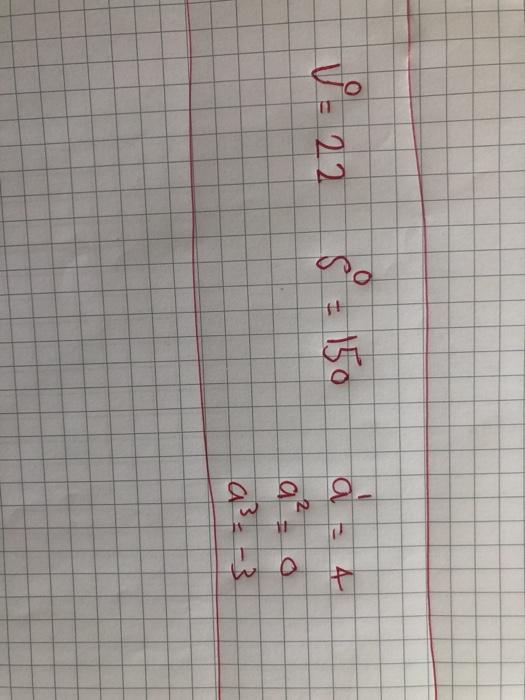 V⁰ = 22 S⁰ = 150 a¹ = 4
a² = 0
a³ = -3